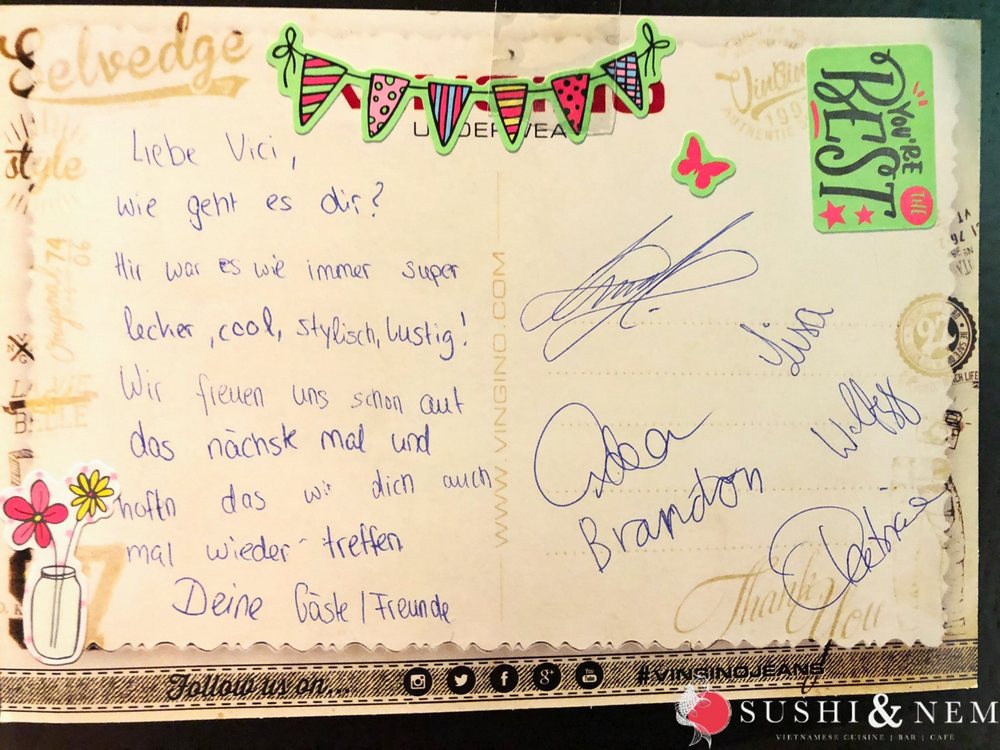 Selvedge
VINGINO
UNDERWEAR
YOU'RE
THE
BEST
style
Original 74
Liebe Vici,
wie geht es dir?
Hir war es wie immer super
lecher, cool, stylisch, lustig!
Wir freuen uns schon auf
das nächste mal und
hoffn das wir dich auch
mal wieder treffen
Deine Gäste / Freunde
WWW.VINGINO.COM
Lisa
Brandon
Thank You
Follow us on...
#VINGINOJEANS
SUSHI & NEM
VIETNAMESE CUISINE | BAR | CAFE